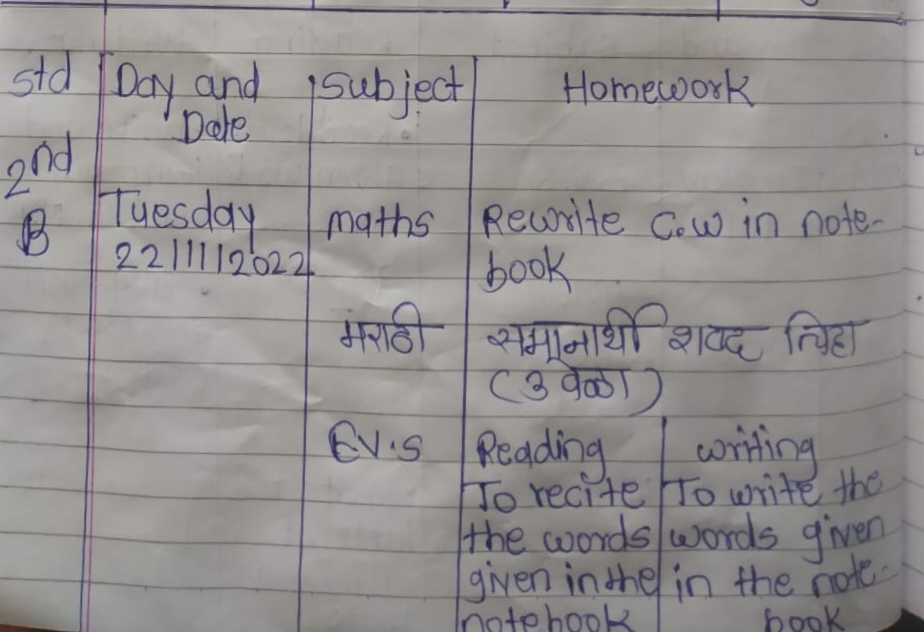 std Day and Subject Homework
Date
2nd
B Tuesday maths Rewrite C.W in note-
22/11/2022 book
मराठी समानार्थी शब्द लिहा
(3 वेळा)
EV.S Reading writing
To recite To write the
the words words given
given in the in the note-
notebook book